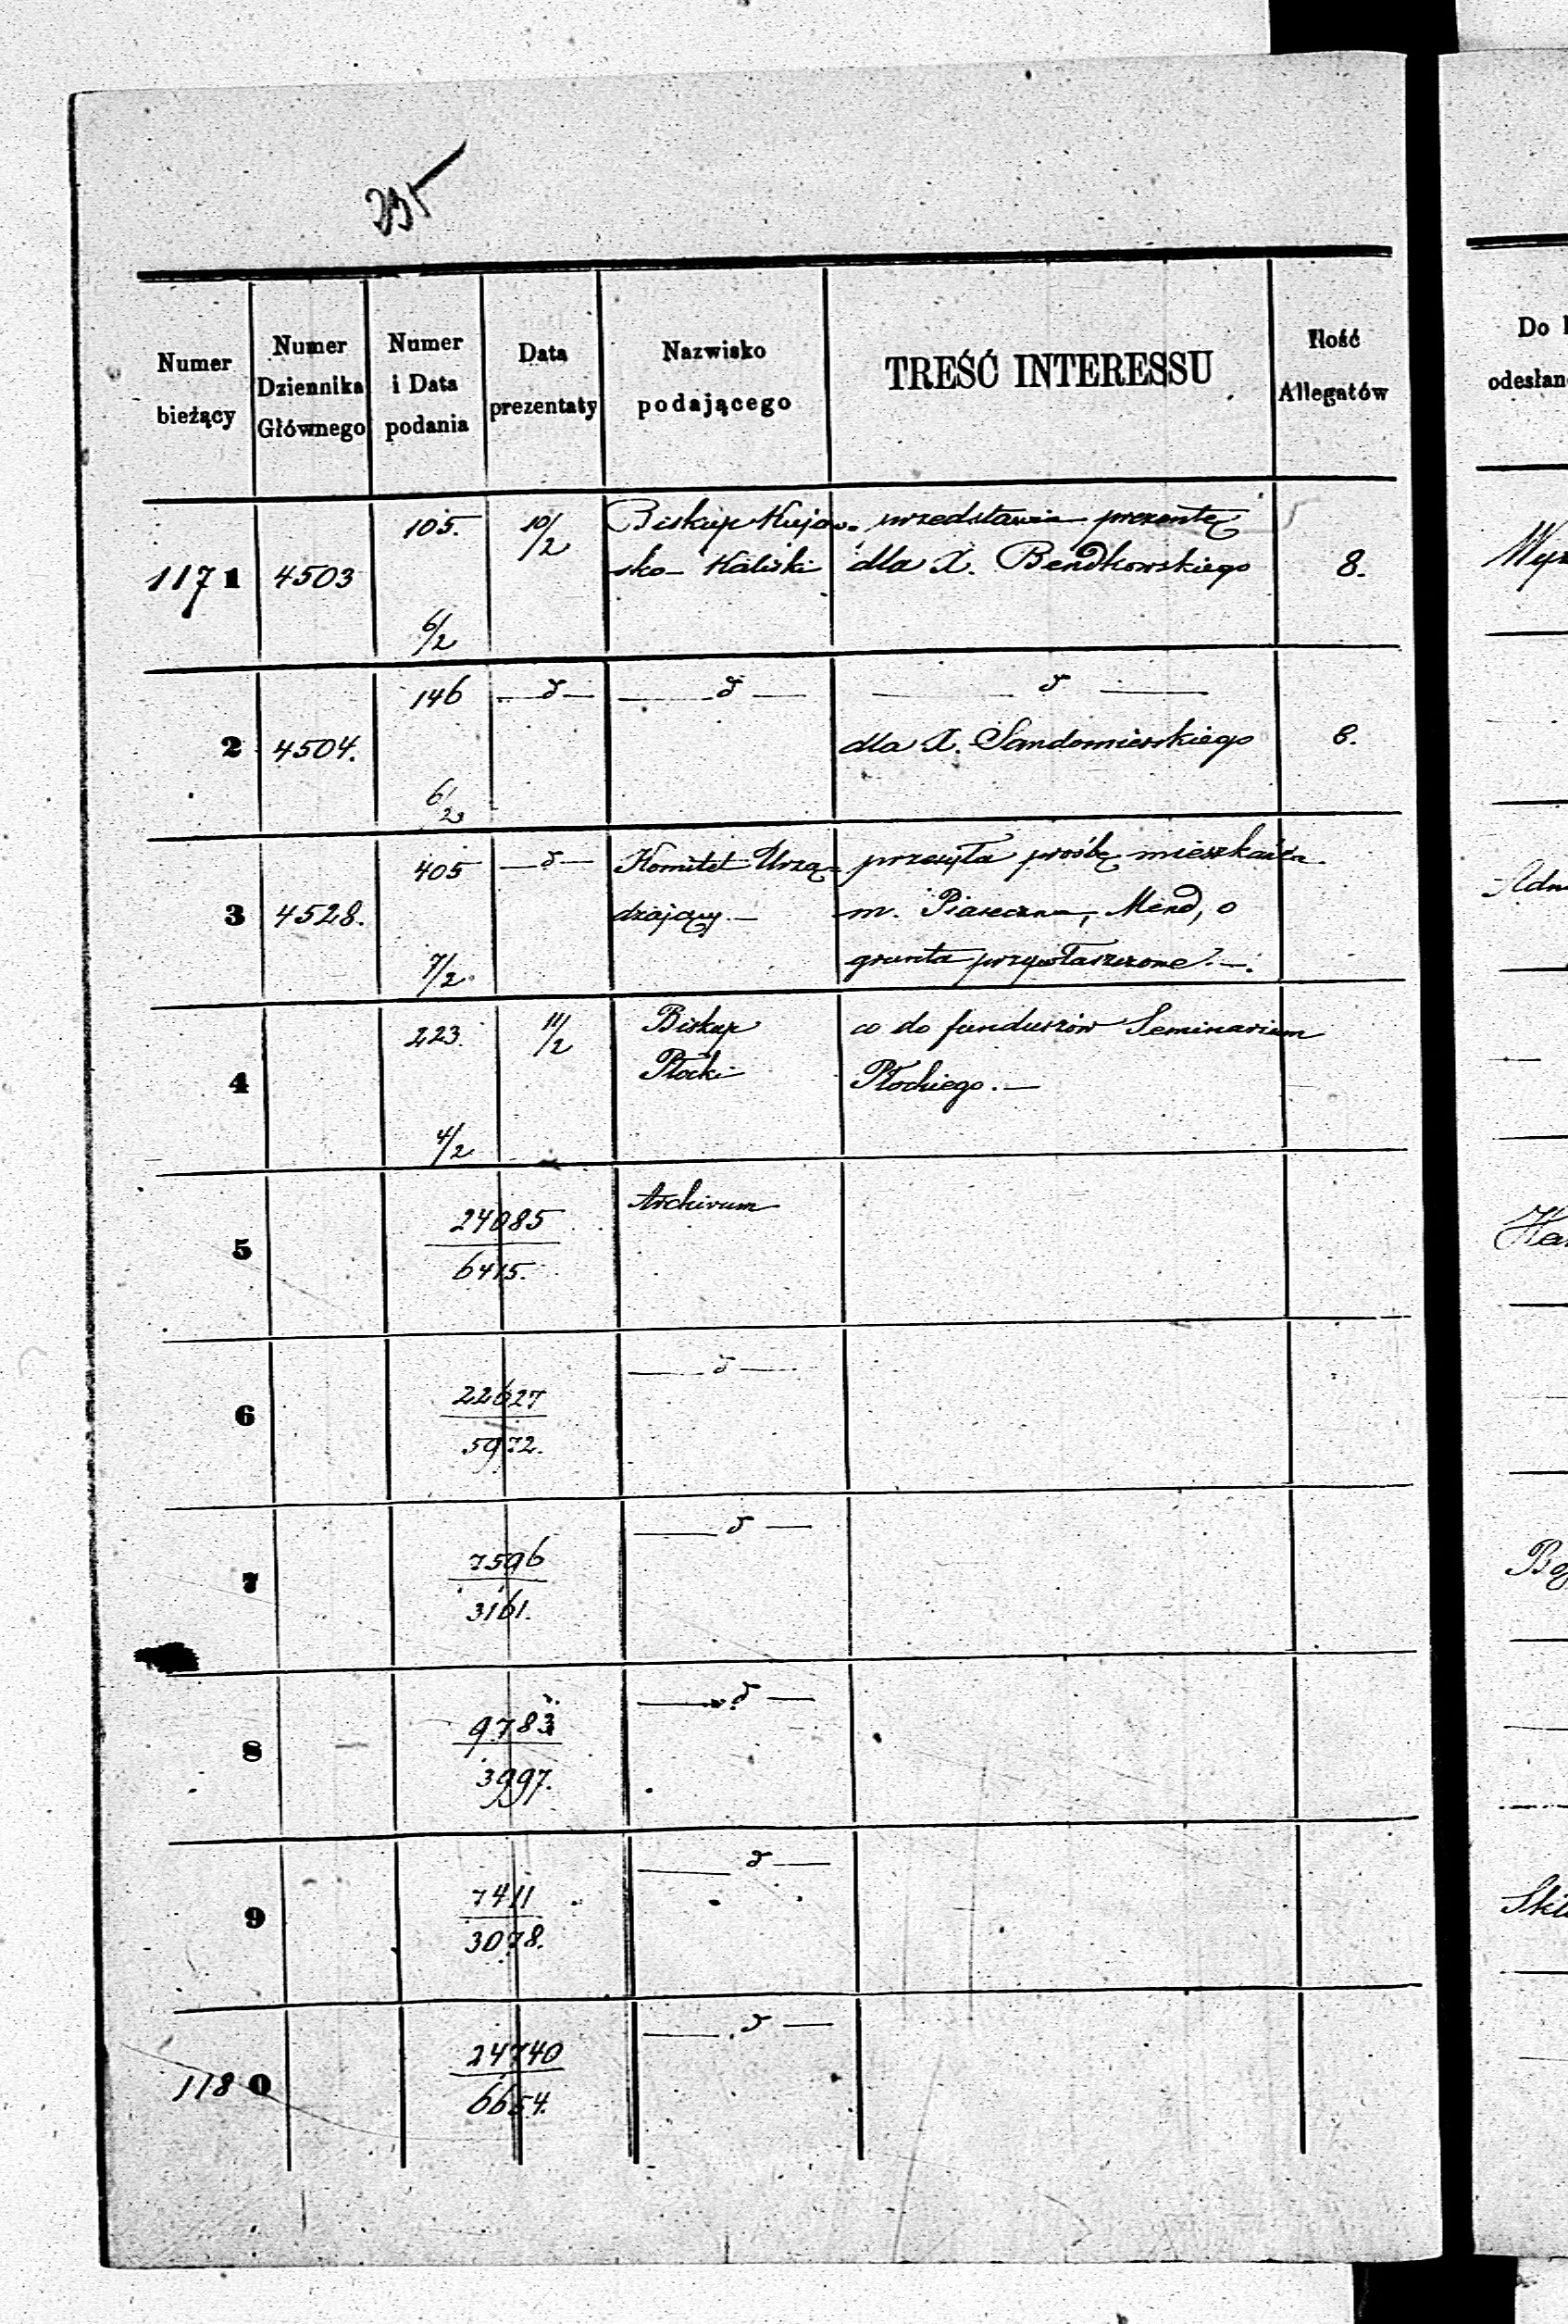 Numer bieżący
Numer Dziennika Głównego
Numer i Data podania
Data prezentaty
Nazwisko podającego
TREŚĆ INTERESSU
Ilość Allegatów
1171 4503 105. 6/2 10/2 Biskup Kujaw- przedstawia prezentę 8.
sko-Kaliski dla X. Bendkowskiego
2 4504. 146 6/2 —d— —d— —d— 6.
dla X. Sandomierskiego
3 4528. 405 7/2 —d— Komitet Urzą- przesyła prośbę mieszkańca
dzający.— m. Piaseczna, Mend, o
grunta przywłaszczone.—
4 223. 4/2 11/2 Biskup co do funduszów Seminarium
Płocki Płockiego.—
5 24085 Archivum
6415.
6 22627 —d—
5972.
7 7596 —d—
3161.
8 9783 —d—
3997.
9 7411 —d—
3078.
1180 24740 —d—
6654.
Do
odesłan